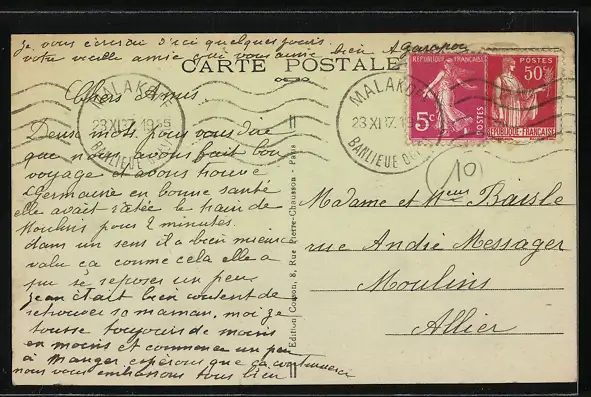 je vous écrirai d'ici quelques jours
votre vieille amie qui vous aime
CARTE POSTALE
Chers Amis
Deux mots pour vous dire
que nous avons fait bon
voyage et avons trouvé
Germaine en bonne santé
elle avait ratée le train de
Moulins pour 2 minutes.
dans un sens il a bien mieux
valu ca comme cela elle a
pu se reposer un peu
Jean était bien content de
retrouver sa maman, moi je
tousse toujours de moins
en moins et commence un peu
à manger espérons que ca continuera
nous vous embrassons tous bien
Edition Coupon, 8, Rue Pierre-Chausson - Paris
MALAKOFF
23 XI 37 1955
BANLIEUE
MALAKOFF
23 XI 37
BANLIEUE
REPUBLIQUE FRANÇAISE
5c
POSTES
POSTES
50c
REPUBLIQUE-FRANÇAISE
10
Madame et Mr Baisle
rue André Messager
Moulins
Allier